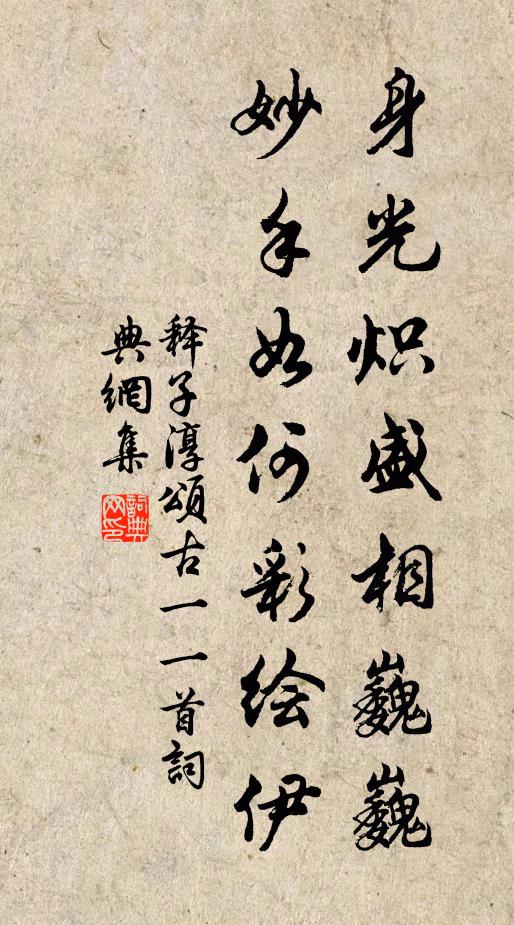 身光炽盛相巍巍
妙手如何彩绘伊
释子淳頌古一一首詞
典網集
詞典
网印